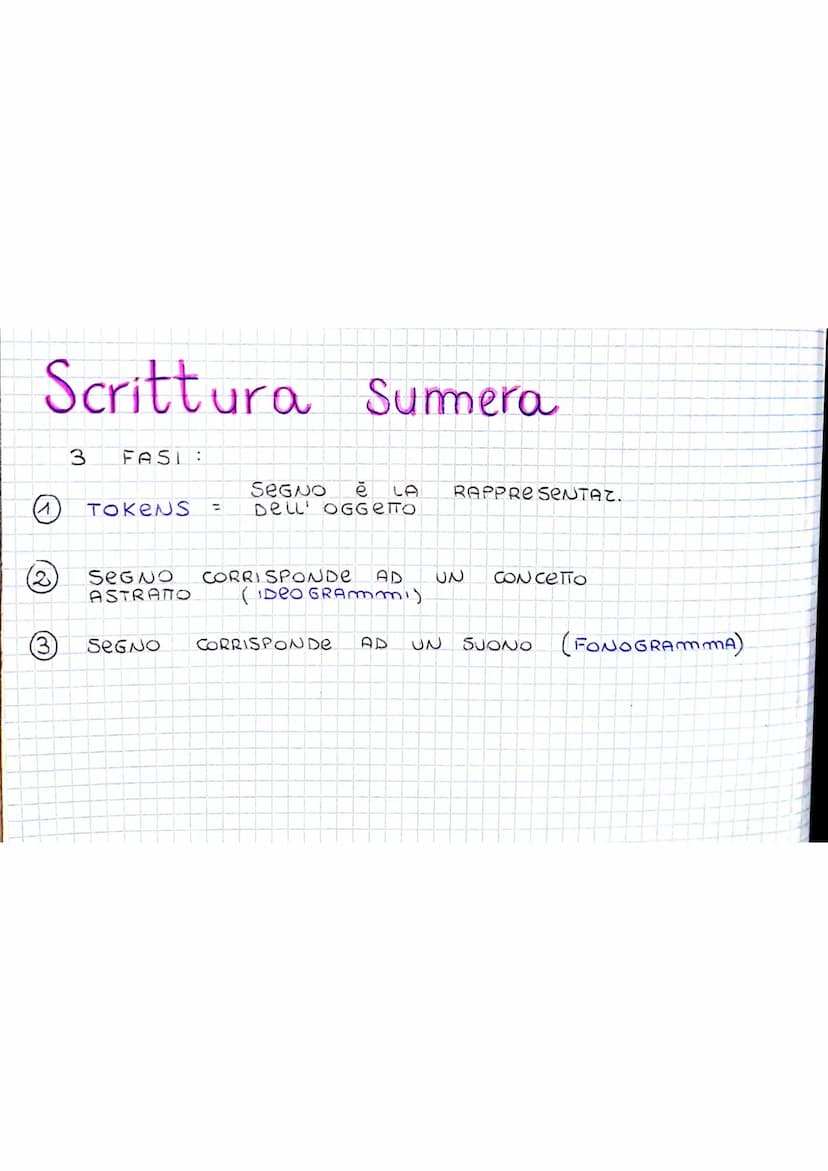 Scrittura sumera
3 FASI:
SEGNO è LA RAPPRESENTAZ.
① TOKENS = DELL'OGGETTO
② SEGNO CORRISPONDE AD UN CONCETTO
ASTRATTO (IDEOGRAMMI)
③ SEGNO CORRISPONDE AD UN SUONO (FONOGRAMMA)